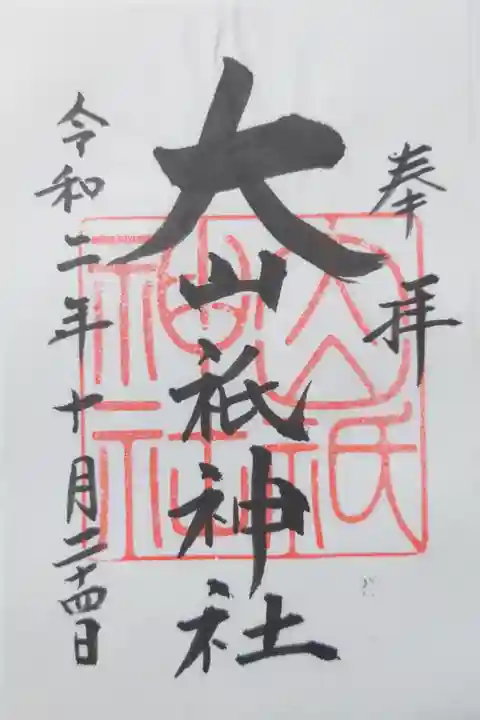 奉拝
大山祇神社
令和二年十月二十四日
大山祇
神社